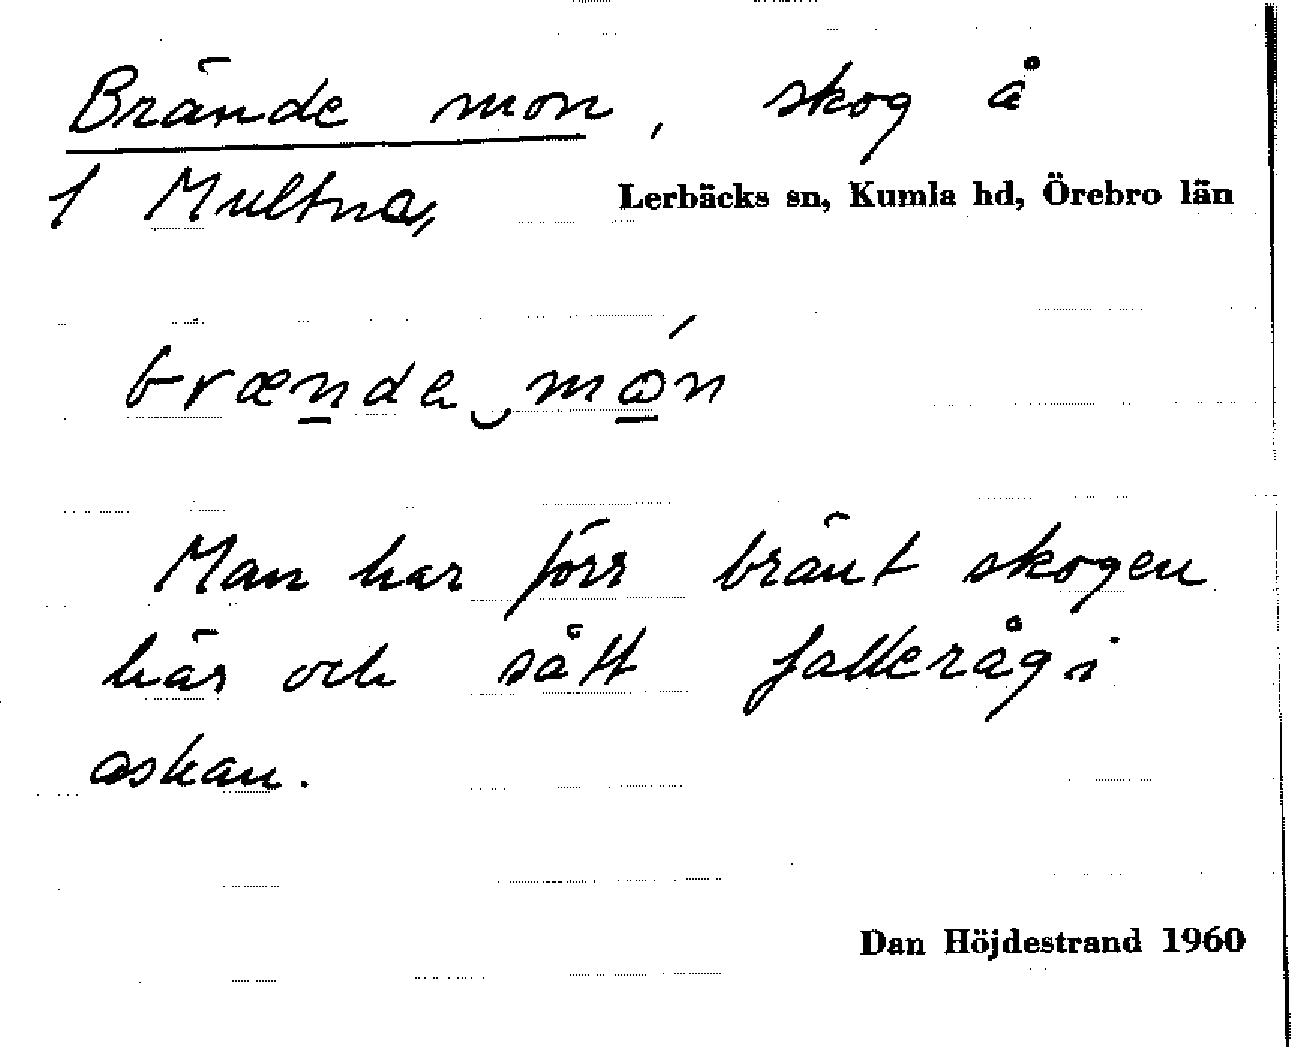 Brände mon, skog å
1 Multna, Lerbäcks sn, Kumla hd, Örebro län
brænde món
Man har förr bränt skogen
här och sått falleråg i
askan.
Dan Höjdestrand 1960